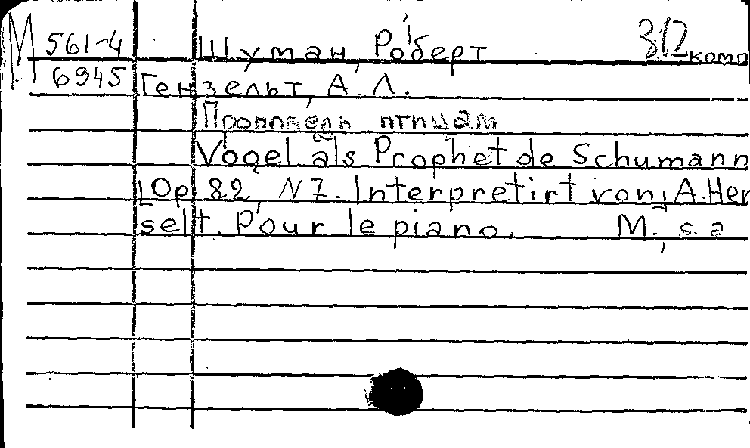 М 561-4 Шуман, Роберт 312 комп
6945 Гензельт, А. Л.
Проповедь птицам
Vogel als Prophet de Schumann
[Op. 82, N7. Interpretirt von; A. Hen
selt. Pour le piano. M., s. a